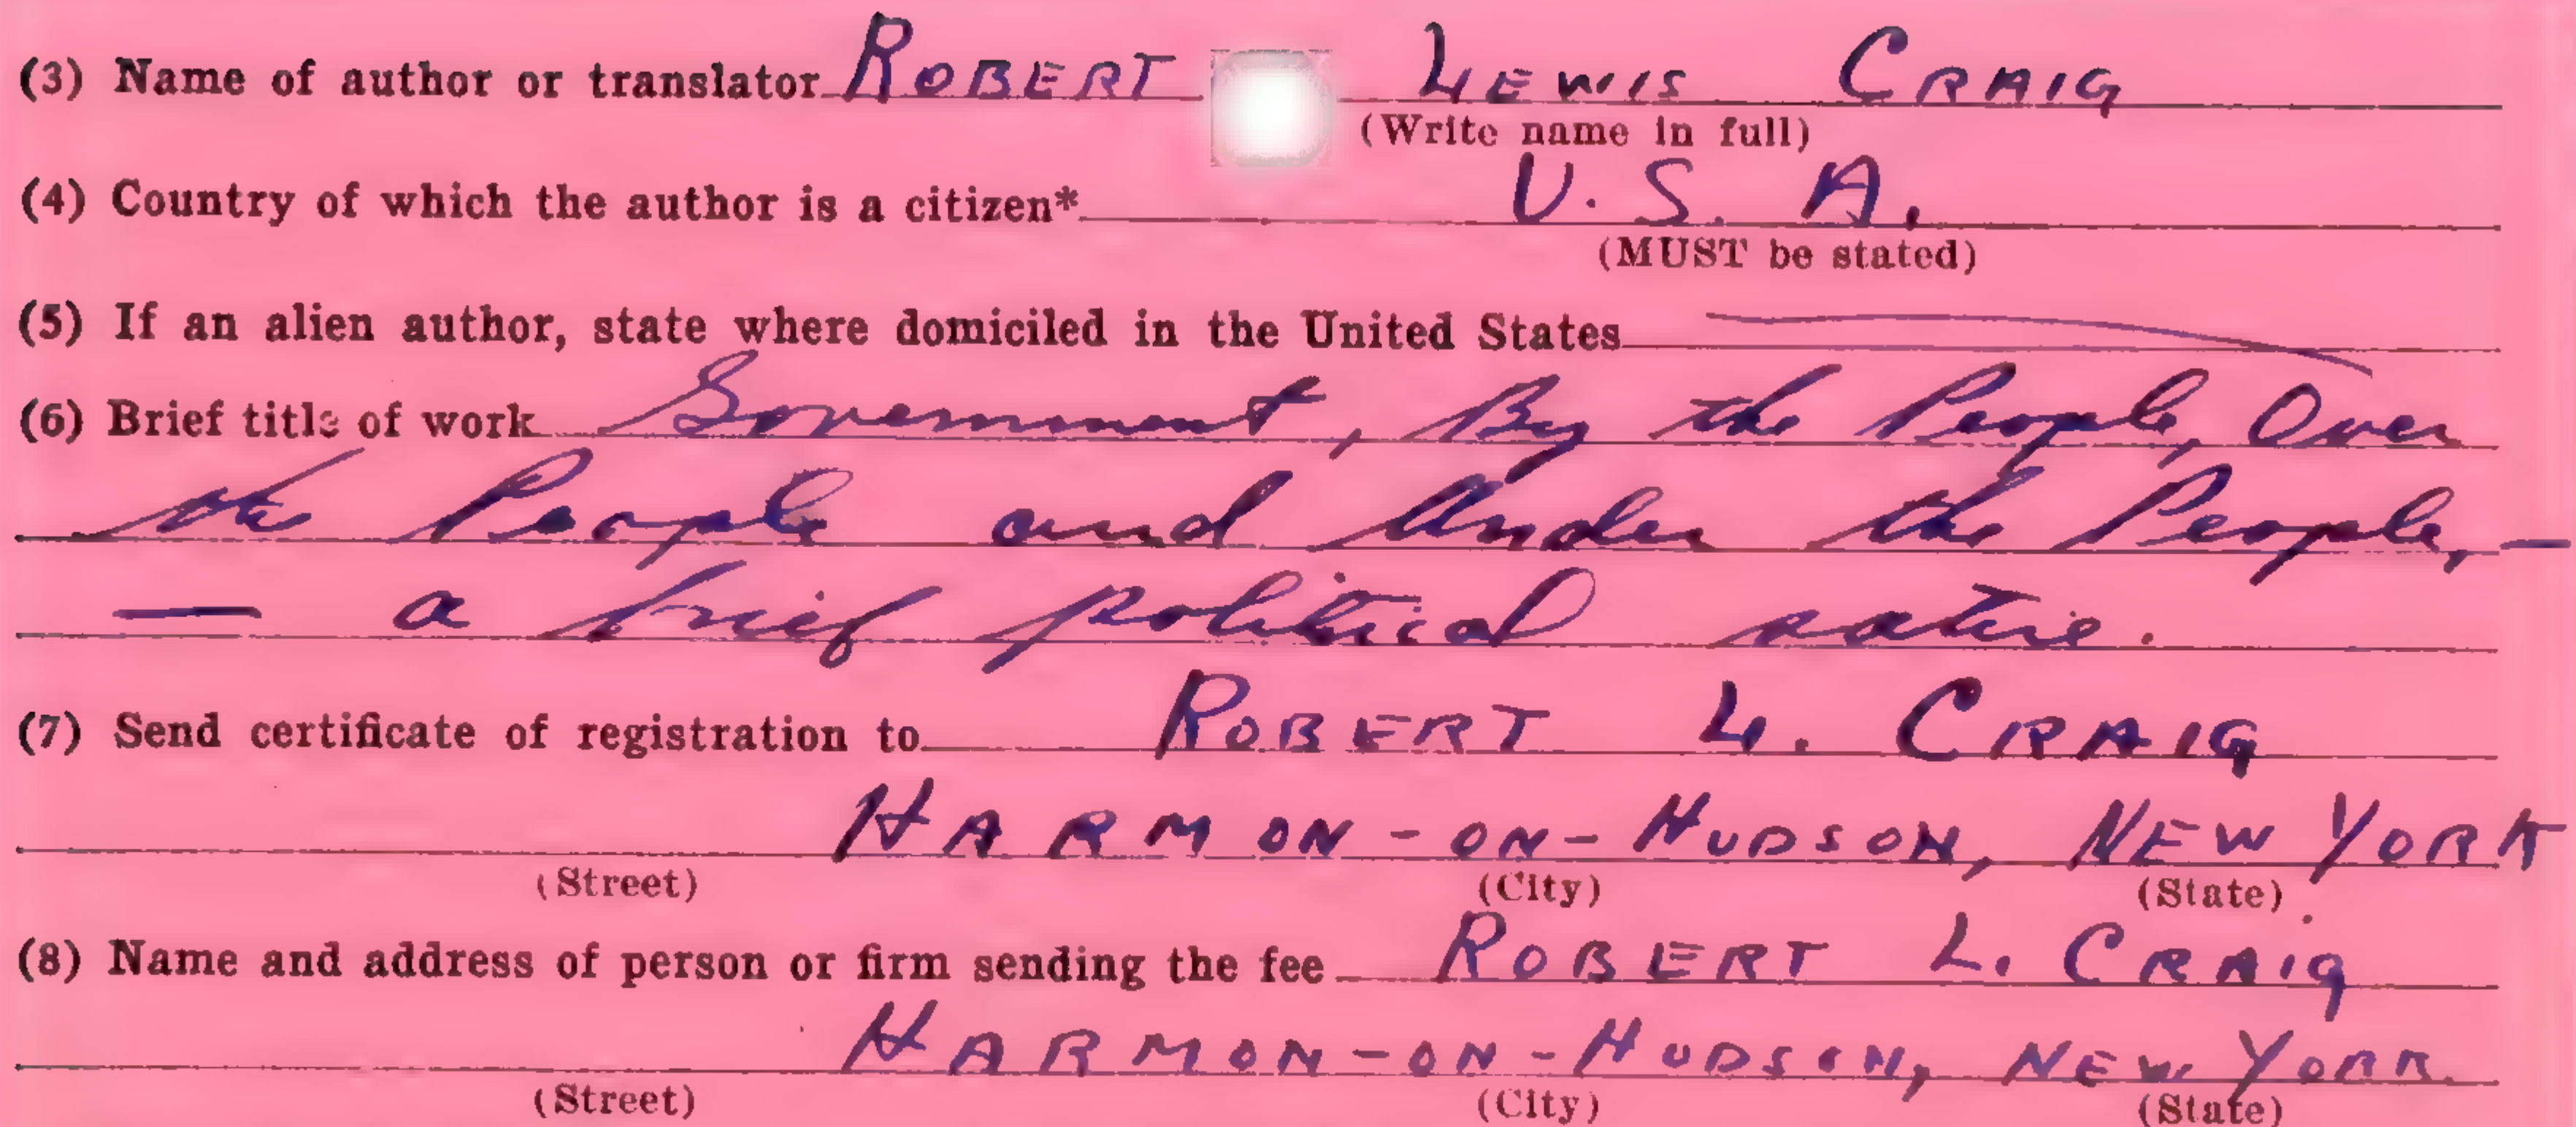 (3) Name of author or translator ROBERT LEWIS CRAIG
(Write name in full)
(4) Country of which the author is a citizen* U. S. A.
(MUST be stated)
(5) If an alien author, state where domiciled in the United States
(6) Brief title of work Government, By the People, Over
the People and Under the People, —
— a brief political satire.
(7) Send certificate of registration to ROBERT L. CRAIG
HARMON-ON-HUDSON, NEW YORK
(Street) (City) (State)
(8) Name and address of person or firm sending the fee ROBERT L. CRAIG
HARMON-ON-HUDSON, NEW YORK
(Street) (City) (State)